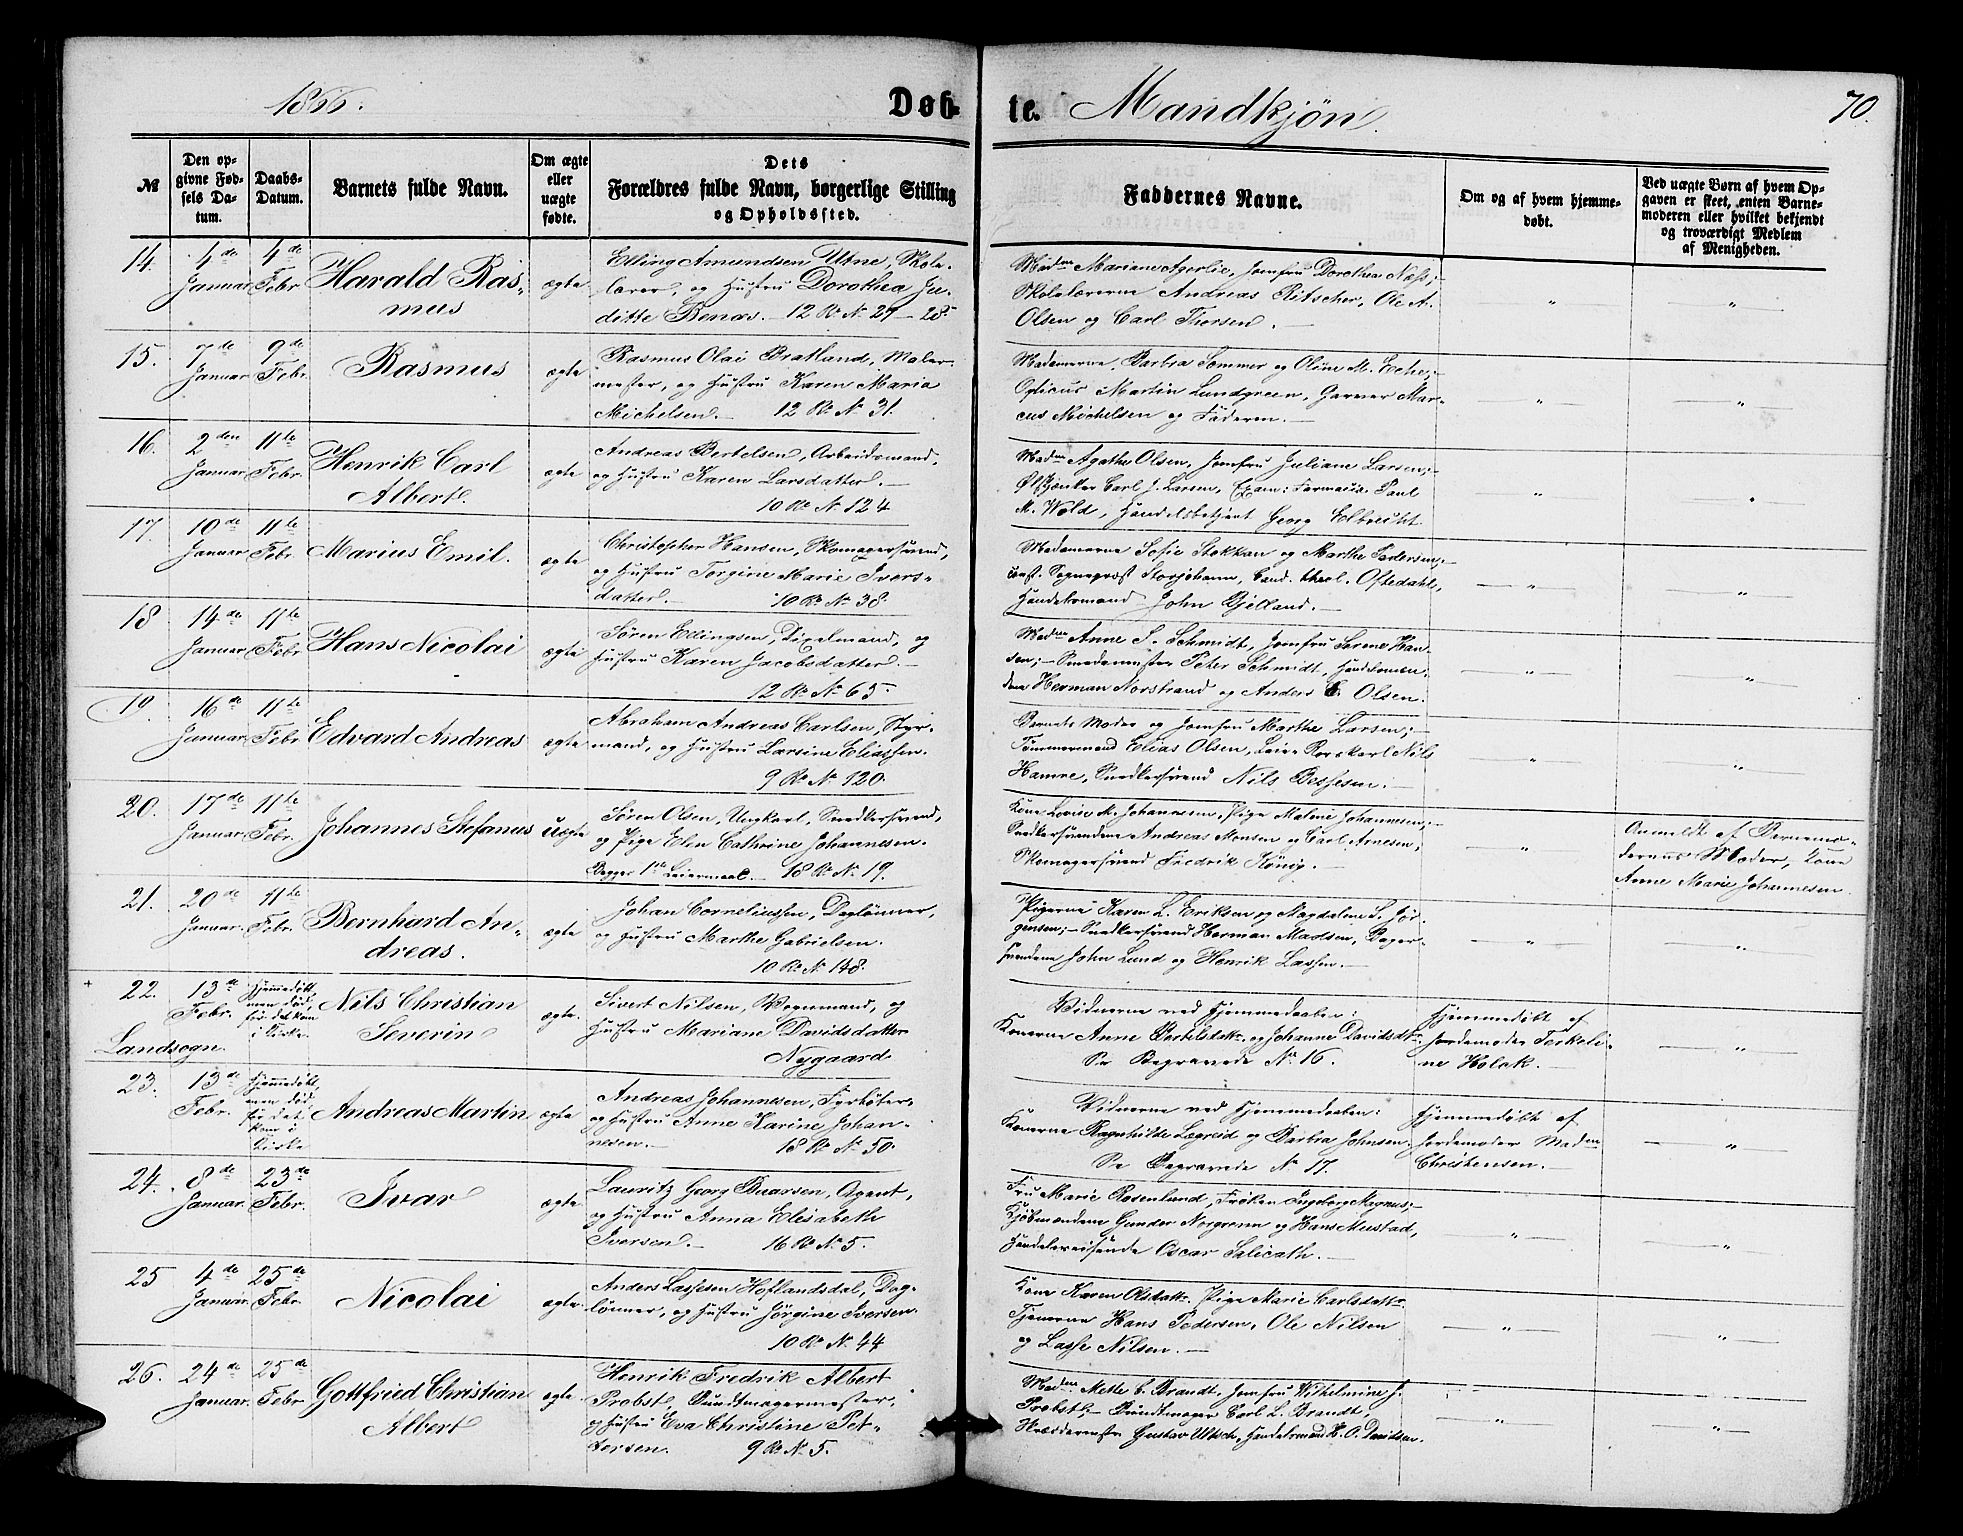 1866.
Døb-
te. Mandkjøn.
70.
№
Den op-
givne Fød-
sels Da-
tum.
Daabs-
Datum.
Barnets fulde Navn.
Om ægte
eller
uægte
fødte.
Dets
Forældres fulde Navn, borgerlige Stilling
og Opholdssted.
Faddernes Navne.
Om og af hvem hjemme-
døbt.
Ved uægte Børn af hvem Op-
gaven er skeet, enten Barne-
moderen eller hvilket bekjendt
og troværdigt Medlem
af Menigheden.
14. 4de Januar 4de Febr
Harald Ras-
mus
ægte
Elling Amundsen Utne, Skole-
lærer, og Hustru Dorothea Ju-
ditte Benæs. 12 Rd. N. 27-28.
Madm Mariane Agerlie, Jomfru Dorothea Næss;-
Skolelærerne Andreas Ritscher, Ole A.
Olsen og Carl Thorsen.
15. 7de Januar 9de Febr.
Rasmus
ægte
Rasmus Olai Bratland, Maler-
mester, og Hustru Karen Maria
Michelsen. 12 Rd. N. 31.
Madamerne Barbra Sommer og Oline M. Eche;-
Opticus Martin Lundgreen, Garver Mar-
cus Michelsen og Faderen.
16. 2den Januar 11te Febr.
Henrik Carl
Albert.
ægte
Andreas Bertelsen, Arbeidsmand,
og Hustru Karen Larsdatter.
10 Rd. N. 124
Madm Agathe Olsen, Jomfru Juliane Larsen;-
Ølskjænker Carl J. Larsen, Exam: Farmacia Paul
M. Wold, Handelsbetjent Georg Elbrecht.
17. 10de Januar 11te Febr.
Marius Emil.
ægte
Christopher Hansen, Skomagersvend,
og Hustru Torgine Marie Ivers-
datter. 10 Rd. N. 38.
Madamerne Sofie Stokkan og Marthe Pedersen;-
const. Sognepræst Storjohann, Cand. theol. Oftedahl,
Handelsmand John Bjelland.
18 14de Januar 11te Febr
Hans Nicolai
ægte
Søren Ellingsen, Dixelmand, og
Hustru Karen Jacobsdatter.
12 Rd. N. 65.
Madm Anne S. Schmidt, Jomfru Serene Han-
sen;- Smedemester Peter Schmidt, Handelsmæn-
dene Herman Norstrand og Anders C. Olsen.
19. 16de Januar 11te Febr
Edvard Andreas
ægte
Abraham Andreas Carlsen, Styr-
mand, og Hustru Larsine Eliassen.
9 Rd. N. 120.
Barnets Moder og Jomfru Marthe Larsen;-
Tømmermand Elias Olsen, Leie-Rorskarl Nils
Hamre, Snedkersvend Nils Bessesen.
20. 17de Januar. 11te Febr.
Johannes Stefanus
uægte
Søren Olsen, Ungkarl, Snedkersvend,
og Pige Elen Cathrine Johannesen.
Begges 1ste Leiermaal. 18 Rd. N. 19.
Kone Lovise M. Johannesen, Pige Malene Johannesen;-
Snedkersvendene Andreas Monsen og Carl Arnesen;
Skomagersvend Fredrik König.
Anmeldt af Barnemo-
derens Moder, Kone
Anne Marie Johannesen.
21. 20de Januar. 11te Febr.
Bernhard An-
dreas.
ægte
Johan Corneliussen, Daglønner,
og Hustru Marthe Gabrielsen.
10 Rd. N. 148.
Pigerne Karen L. Eriksen og Magdalene S. Jør-
gensen;- Snedkersvend Herman Madsen, Bager-
svendene John Lund og Henrik Lassen.
22. 13de Febr.
Landsogn.
Hjemmedøbt,
men død,
før det kom
i Kirke.
Nils Christian
Severin
ægte.
Sivert Nilsen, Vognmand, og
Hustru Mariane Davidsdatter
Nygaard
Vidnerne ved Hjemmedaaben:
Konerne Anne Bertelsdattr. og Johanne Davidsdtr.
Se Begravede No 16.
Hjemmedøbt af
Jordemoder Torkeli-
ne Holak.
23. 13de Febr.
Hjemmedøbt,
men død
før det
kom i
Kirke
Andreas Martin
ægte
Andreas Johannesen, Fyrbøter,
og Hustru Anne Karine Johan-
nesen. 18 Rd. N. 50.
Vidnerne ved Hjemmedaaben:
Konerne Ragnhilde Lægreid og Barbra Johnsen.
Se Begravede No 17.
Hjemmedøbt af
Jordemoder Madm
Christensen.
24. 8de Januar. 23de Febr.
Ivar
ægte
Lauritz Georg Buarsen, Agent,
og Hustru Anna Elisabeth
Iversen. 16 Rd. N. 5.
Fru Marie Rosenlund, Frøken Ingeborg Magnus;-
Kjøbmændene Gunder Norgrenn og Hans Mustad,
Handelsreisende Oscar Salicath.
25 4de Januar. 25de Febr.
Nicolai
ægte
Anders Lassesen Hoflandsdal, Dag-
lønner, og Hustru Jørgine Iversen.
10 Rd. N. 44
Kone Karen Olsdattr. Pige Marie Carlsdattr.
Tjenerne Hans Pedersen, Ole Nilsen
og Lasse Nilsen.
26. 24de Januar. 25de Febr.
Gottfried Christian
Albert
ægte
Henrik Fredrik Albert
Probst, Bundtmagermester,
og Hustru Eva Christine Pet-
tersen. 9 Rd. N. 5.
Madm. Mette C. Brandt, Jomfru Wilhelmine J.
Probst;- Bundtmager Carl L. Brandt,
Skræddermstr Gustav Ultsch, Handelsmand H. O. Davidsen.